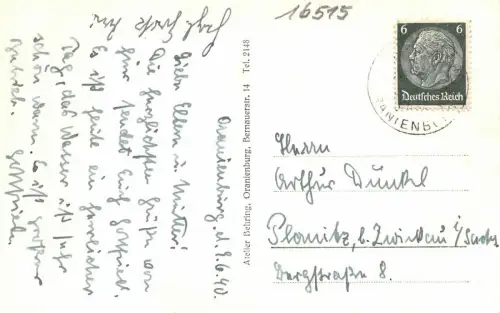 16515
6 6
Deutsches Reich
ORANIENBURG
Herrn
Arthur Dunkel
Planitz, b. Zwickau i/Sachs
Bergstraße 8.
Atelier Behring, Oranienburg, Bernauerstr. 14 Tel. 2148
Oranienburg, d. 9.6.40.
Liebe Eltern u. Mutter!
Die herzlichsten Grüße von
hier sendet Euch Gottfried.
Es ist heute ein herrlicher
Tag, das Wasser ist sehr
schön warm. Es ist großer
Betrieb. Gottfried.